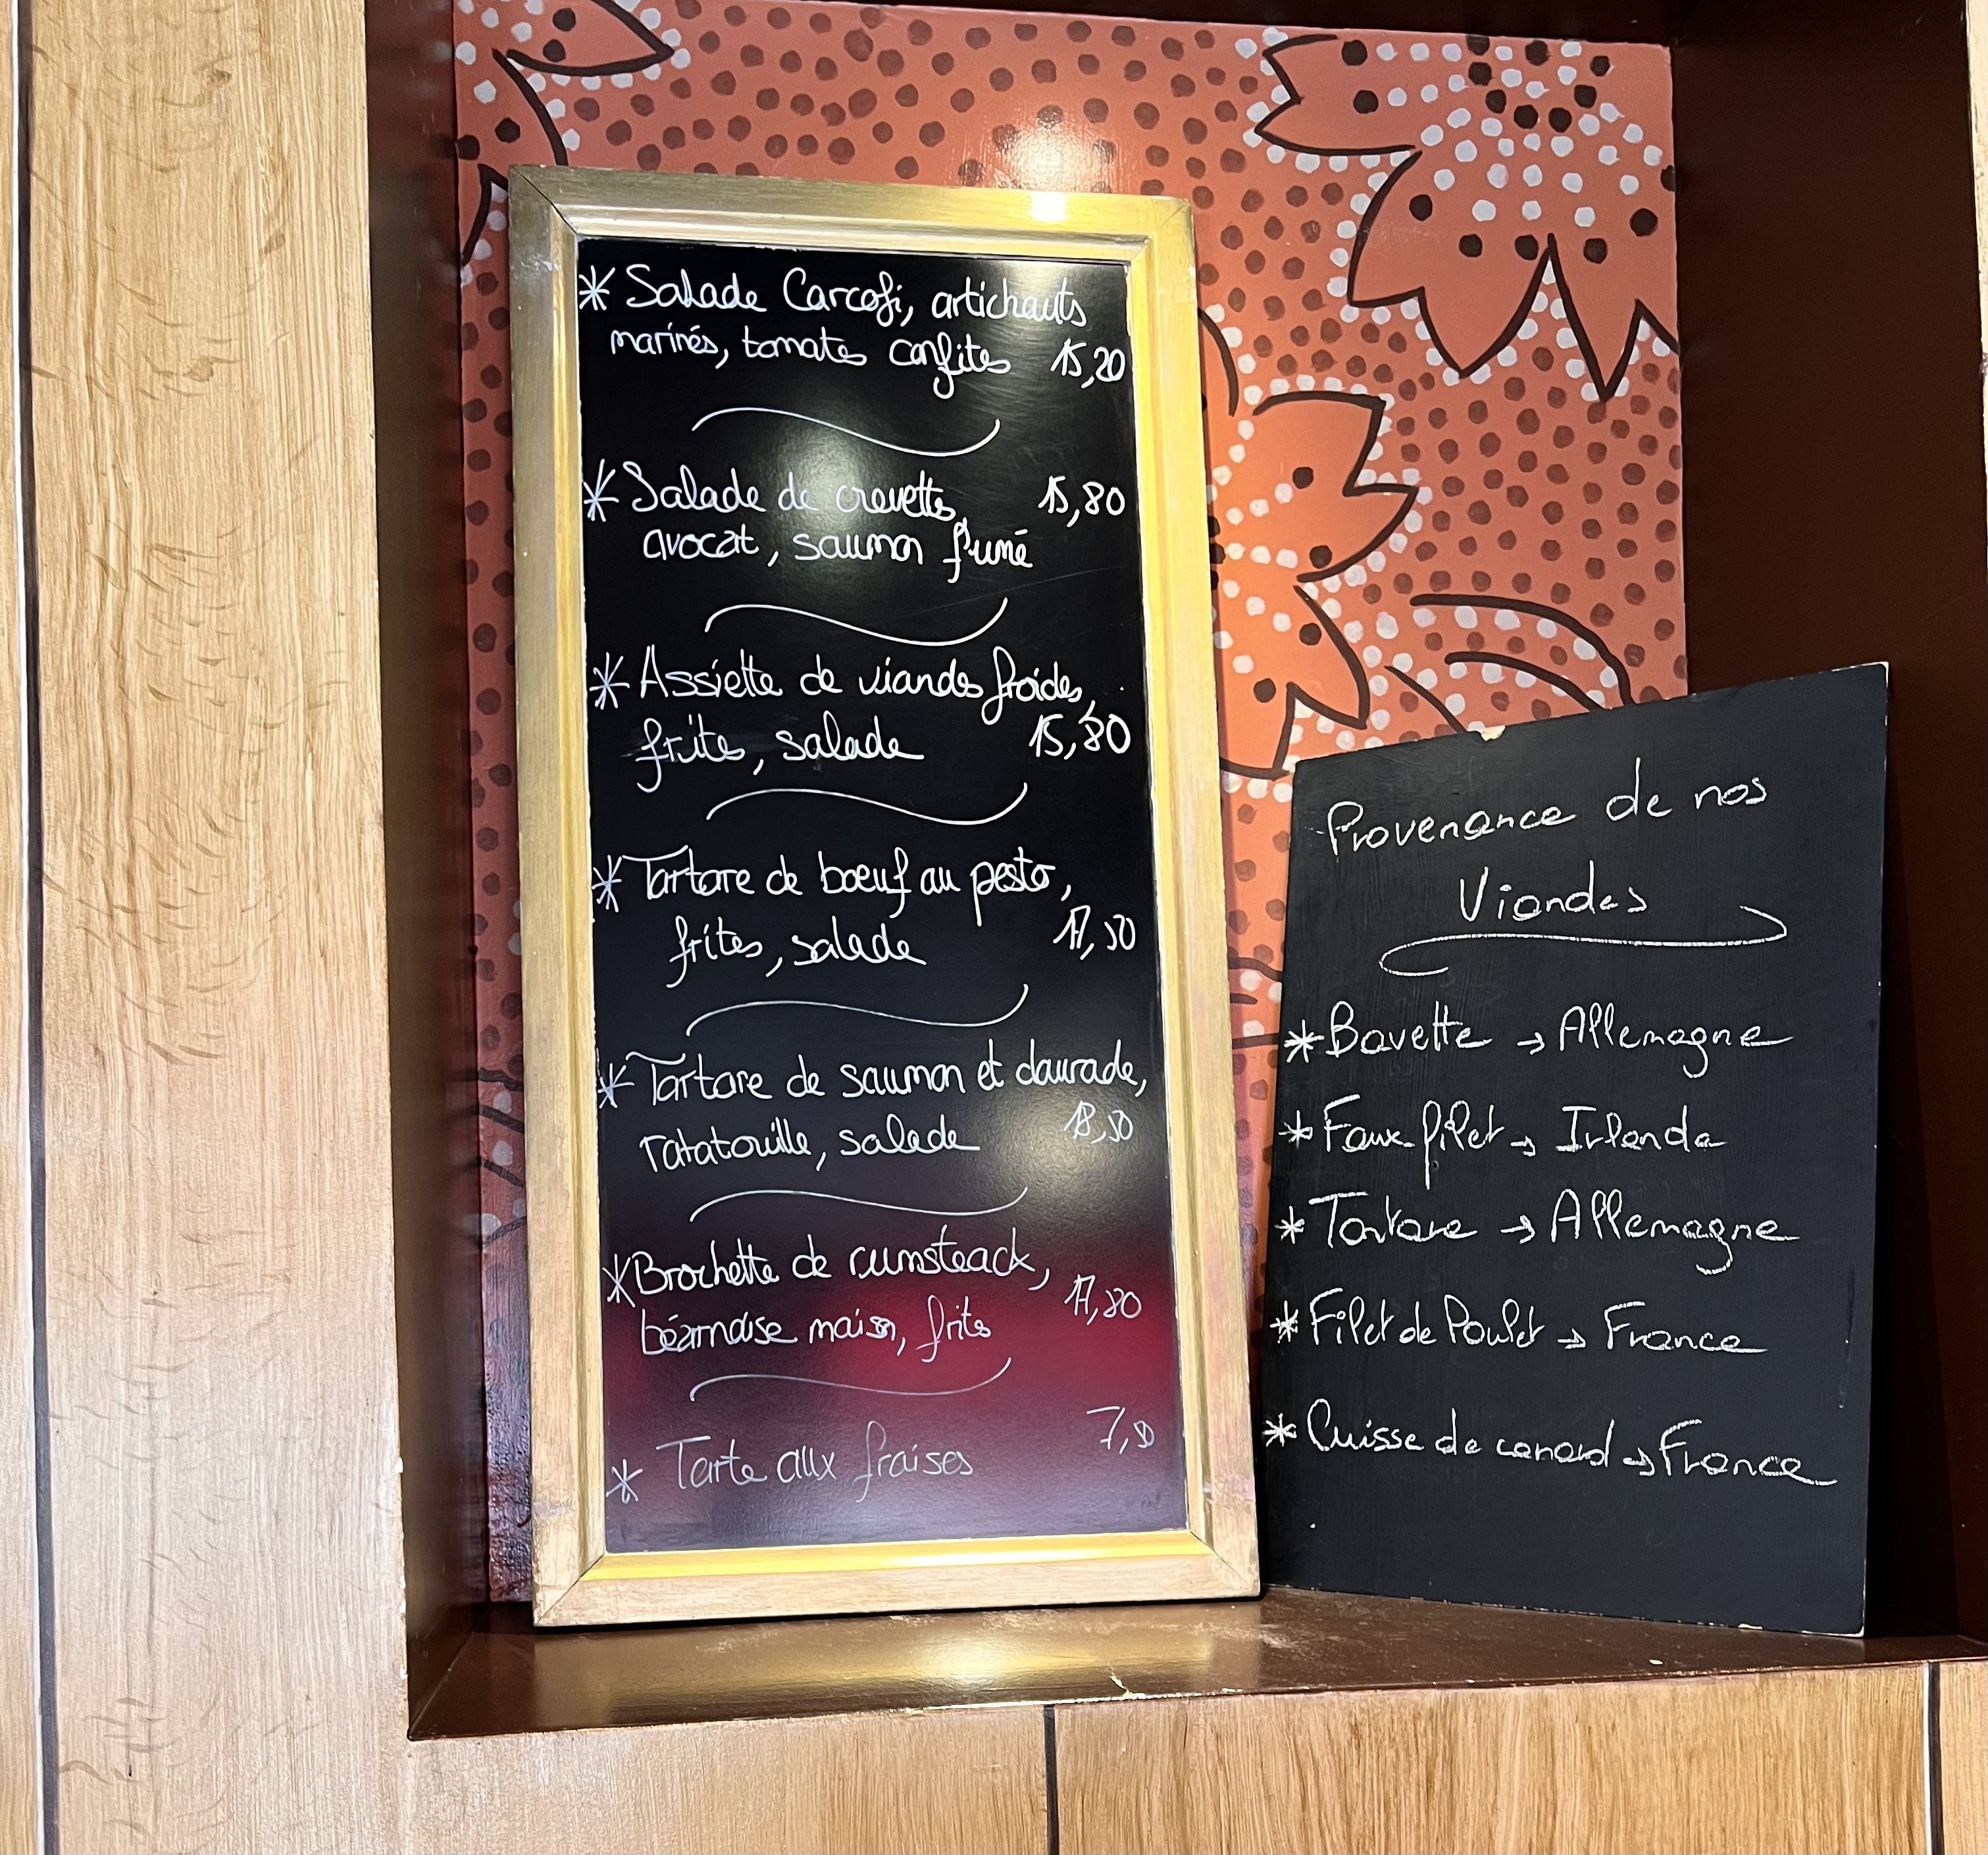 * Salade Carcofi, artichauts
marinés, tomates confites 15,20
* Salade de crevettes, 15,80
avocat, saumon fumé
* Assiette de viandes froides,
frites, salade 15,80
* Tartare de boeuf au pesto,
frites, salade 17,50
* Tartare de saumon et daurade,
ratatouille, salade 18,50
* Brochette de rumsteack,
béarnaise maison, frites 17,80
* Tarte aux fraises
Provenance de nos
Viandes
* Bavette → Allemagne
* Faux filet → Irlande
* Tartare → Allemagne
* Filet de Poulet → France
* Cuisse de canard → France